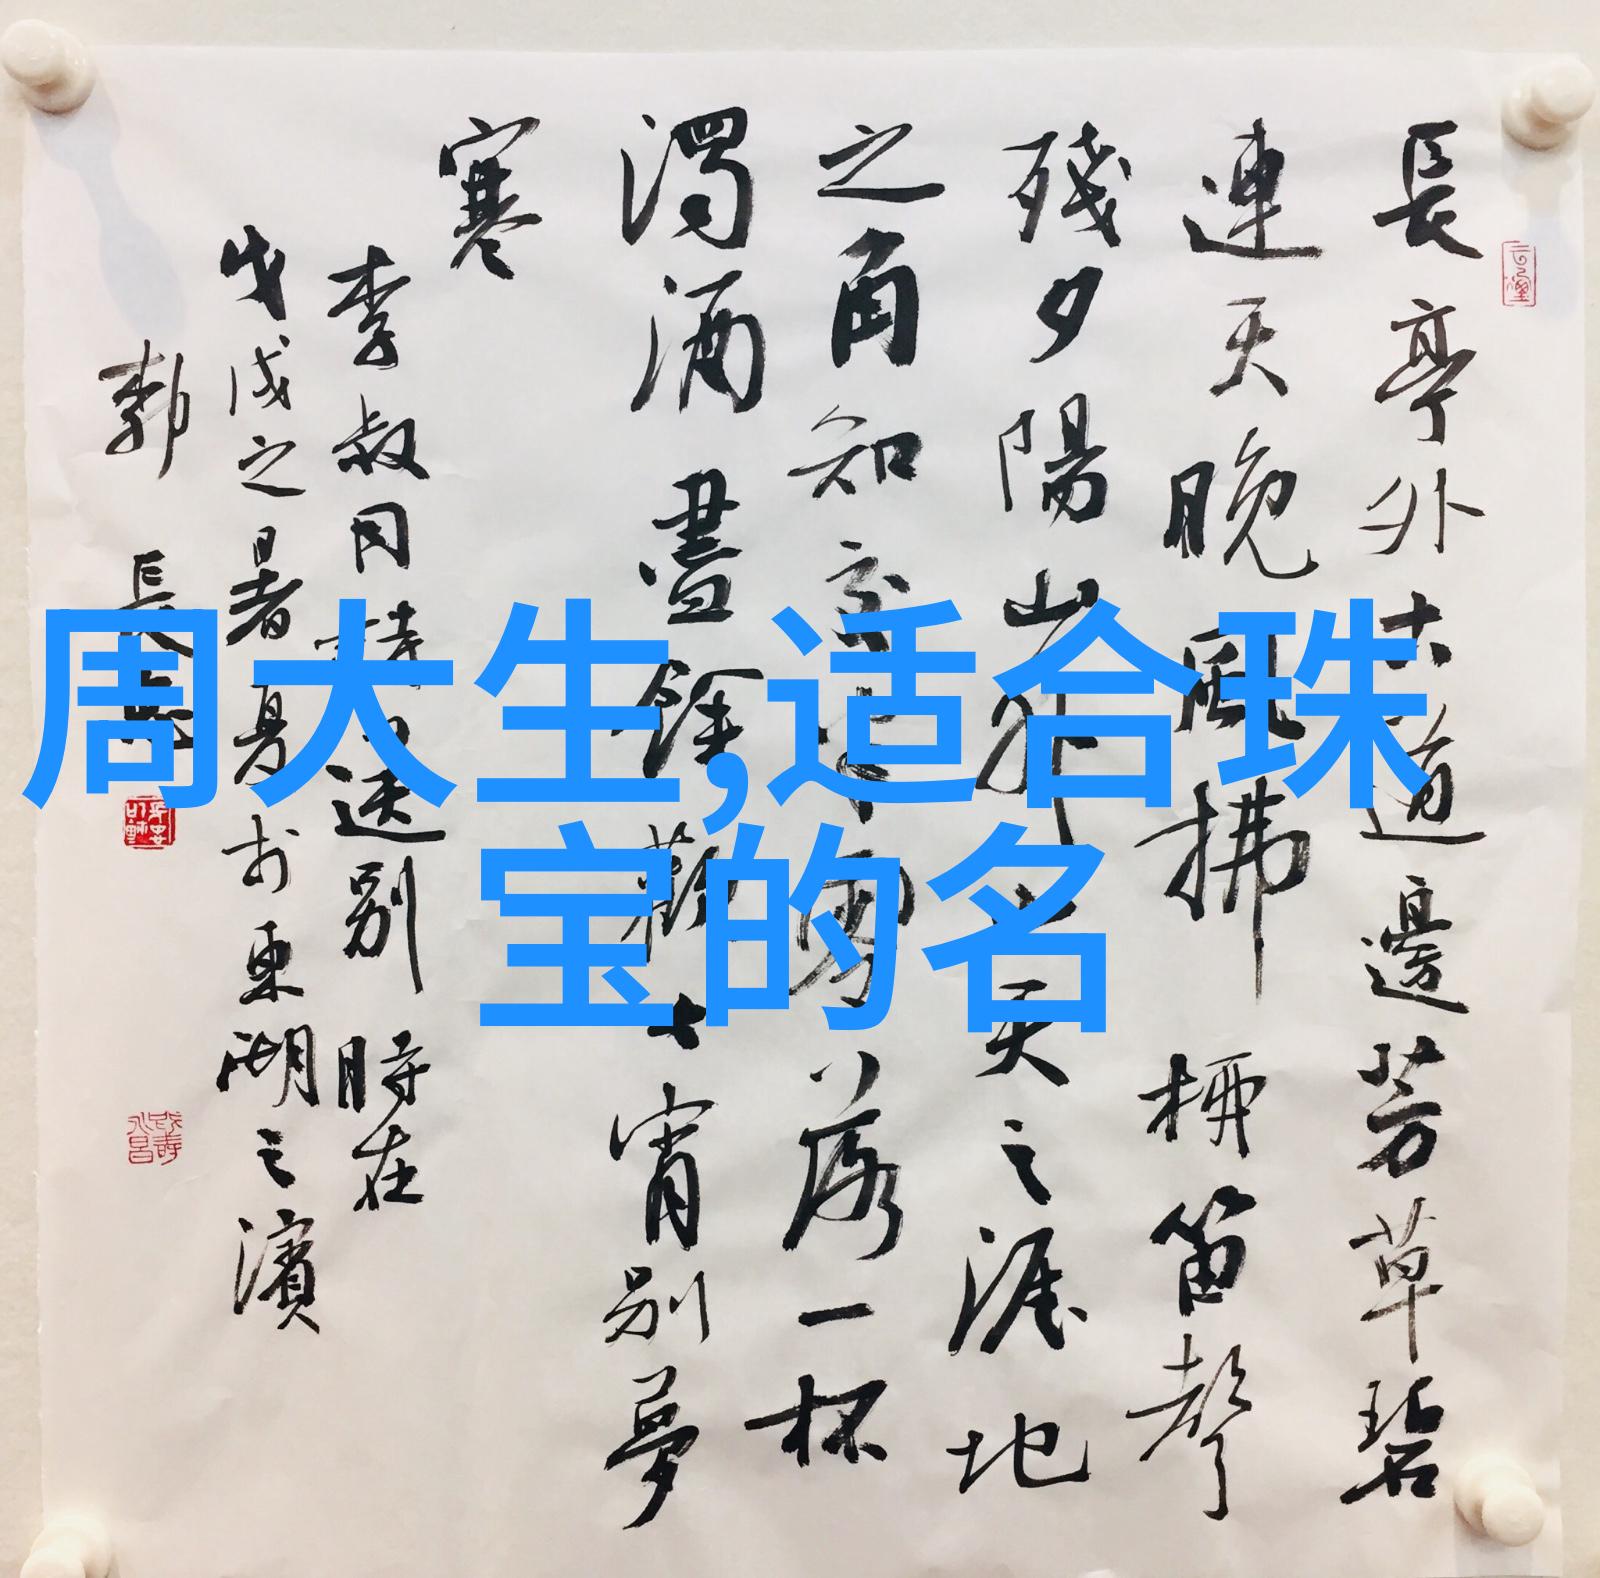 長亭外古道邊芳草碧
連天晚風拂柳笛聲
殘夕陽山外山天之涯地
之角知交半零落一杯
濁酒盡餘歡今宵別夢
寒
李叔同詩送別 時在
戊戌之暑月於東湖之濱
郭長
周大生,适合珠
宝的名